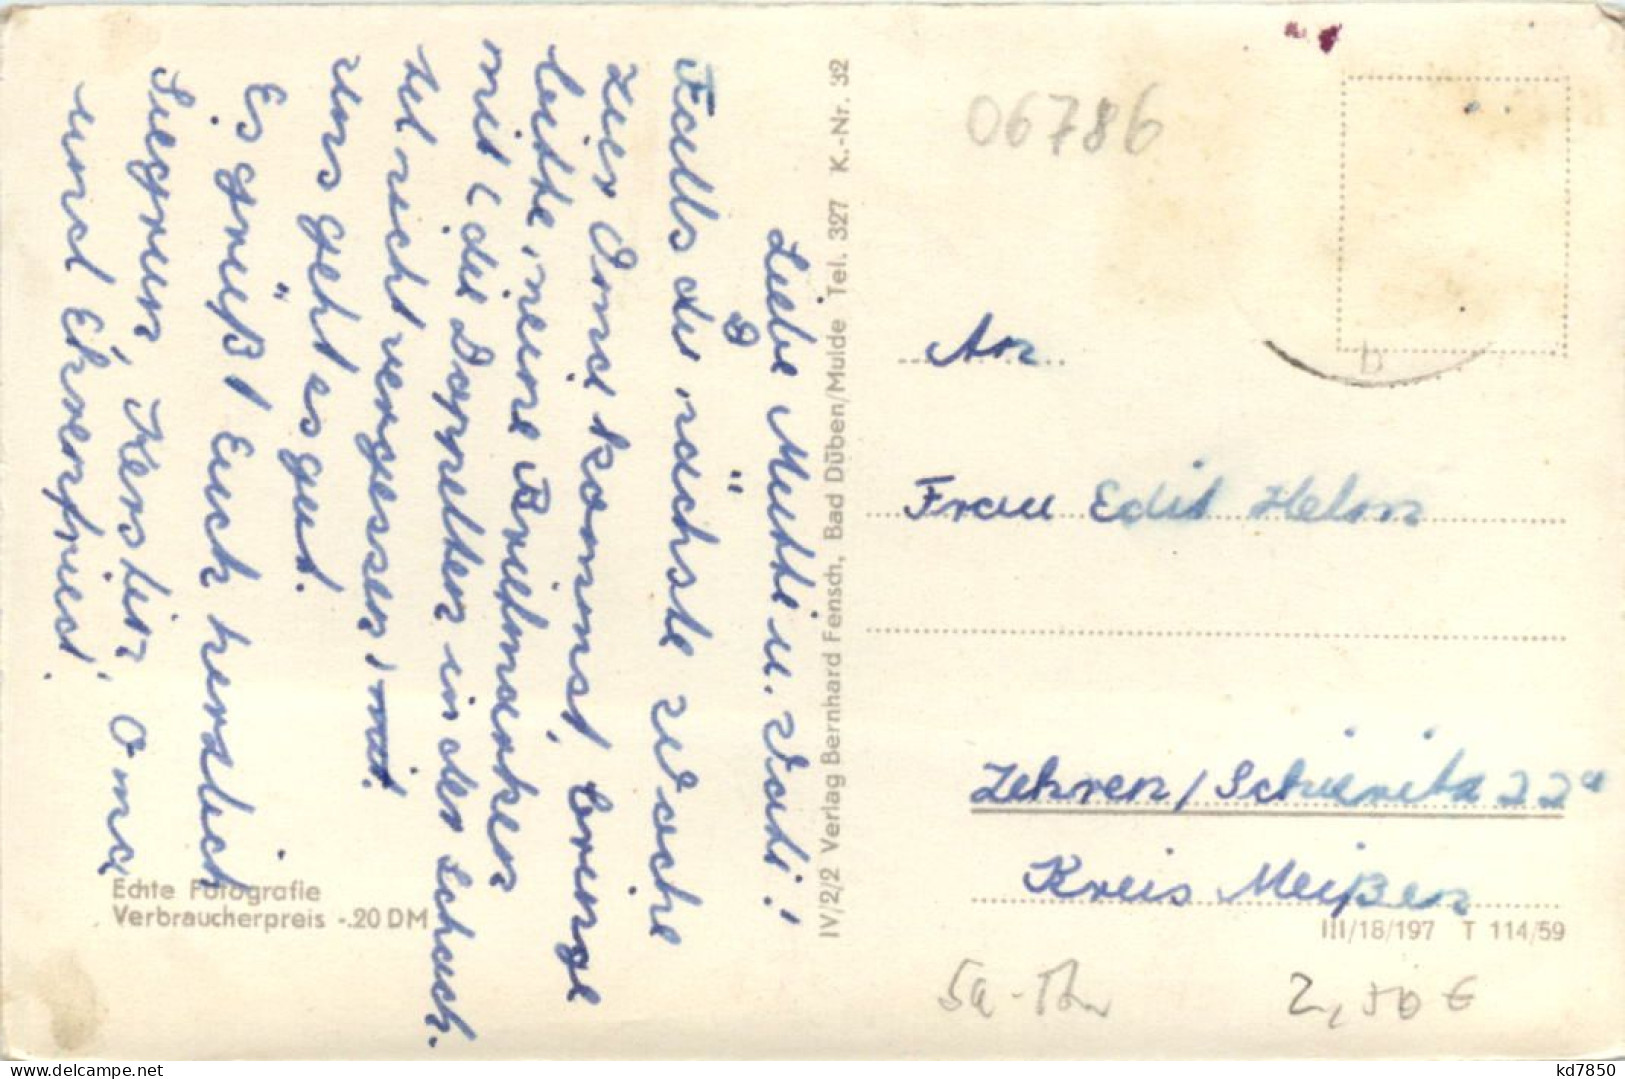 Liebe Mutti u. Vati!
Falls du nächste Woche
zur Oma kommst, bringe
bitte meine Briefmarken
mit (die Doppelten in der Schach-
tel nicht vergessen) mit.
Uns geht es gut.
Es grüßt Euch herzlich
Siegrun, Kerstin, Oma
und Ehrenfried.
Echte Fotografie
Verbraucherpreis -.20 DM
IV/2/2 Verlag Bernhard Fensch, Bad Düben/Mulde Tel. 327 K.-Nr. 32
06786
b
An
Frau Edit Helm
Zehren/Schieritz 22a
Kreis Meißen
III/18/197 T 114/59
2,50 €
kd7850